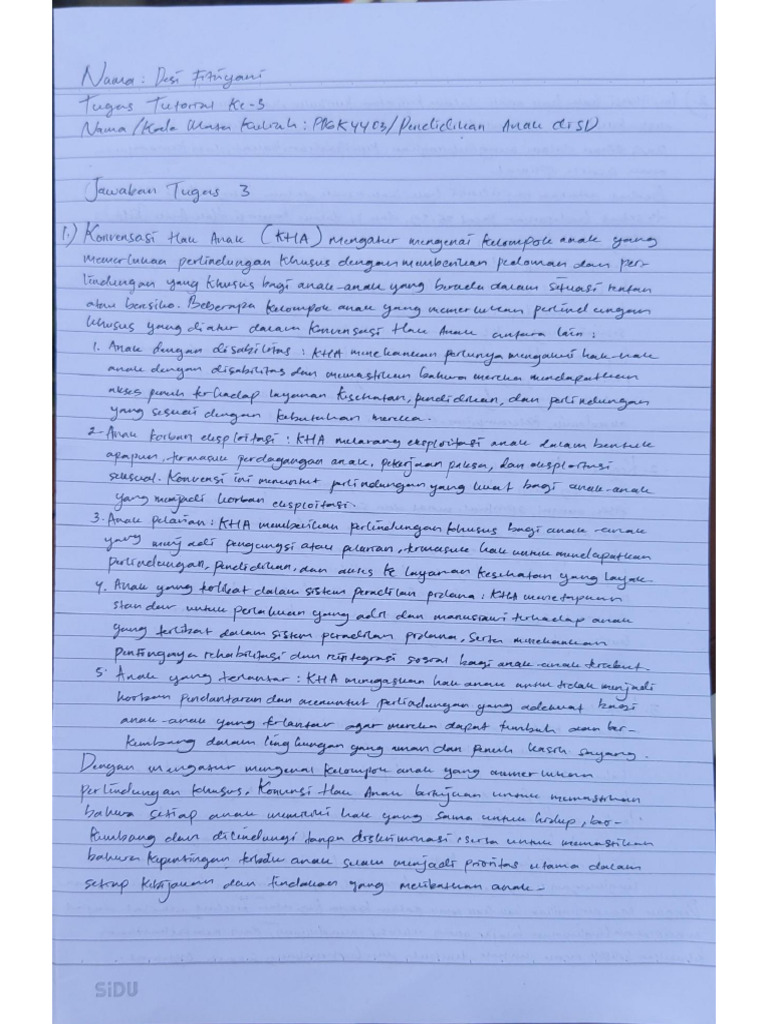 Nama : Desi Fitriyani
Tugas Tutorial Ke-3
Nama/Kode Mata Kuliah : PDGK4403/Pendidikan Anak di SD
Jawaban Tugas 3
1.) Konvensasi Hak Anak (KHA) mengatur mengenai kelompok anak yang
memerlukan perlindungan khusus dengan memberikan pedoman dan per-
lindungan yang khusus bagi anak-anak yang berada dalam situasi rentan
atau berisiko. Beberapa kelompok anak yang memerlukan perlindungan
khusus yang diatur dalam Konvensasi Hak Anak antara lain :
1. Anak dengan disabilitas : KHA menekankan perlunya mengakui hak-hak
anak dengan disabilitas dan memastikan bahwa mereka mendapatkan
akses penuh terhadap layanan kesehatan, pendidikan, dan perlindungan
yang sesuai dengan kebutuhan mereka.
2. Anak korban eksploitasi : KHA melarang eksploitasi anak dalam bentuk
apapun, termasuk perdagangan anak, pekerjaan paksa, dan eksploitasi
seksual. Konvensi ini menuntut perlindungan yang kuat bagi anak-anak
yang menjadi korban eksploitasi.
3. Anak pelarian : KHA memberikan perlindungan khusus bagi anak-anak
yang menjadi pengungsi atau pelarian, termasuk hak untuk mendapatkan
perlindungan, pendidikan, dan akses ke layanan kesehatan yang layak
4. Anak yang terlibat dalam sistem peradilan pidana : KHA menetapkan
standar untuk perlakuan yang adil dan manusiawi terhadap anak
yang terlibat dalam sistem peradilan pidana, serta menekankan
pentingnya rehabilitasi dan reintegrasi sosial bagi anak-anak tersebut.
5. Anak yang terlantar : KHA menegaskan hak anak untuk tidak menjadi
korban penelantaran dan menuntut perlindungan yang adekuat bagi
anak-anak yang terlantar agar mereka dapat tumbuh dan ber-
kembang dalam lingkungan yang aman dan penuh kasih sayang.
Dengan mengatur mengenai kelompok anak yang memerlukan
perlindungan khusus, Konvensi Hak Anak bertujuan untuk memastikan
bahwa setiap anak memiliki hak yang sama untuk hidup, ber-
kembang dan dilindungi tanpa diskriminasi, serta untuk memastikan
bahwa kepentingan terbaik anak selalu menjadi prioritas utama dalam
setiap kebijakan dan tindakan yang melibatkan anak-
SiDU